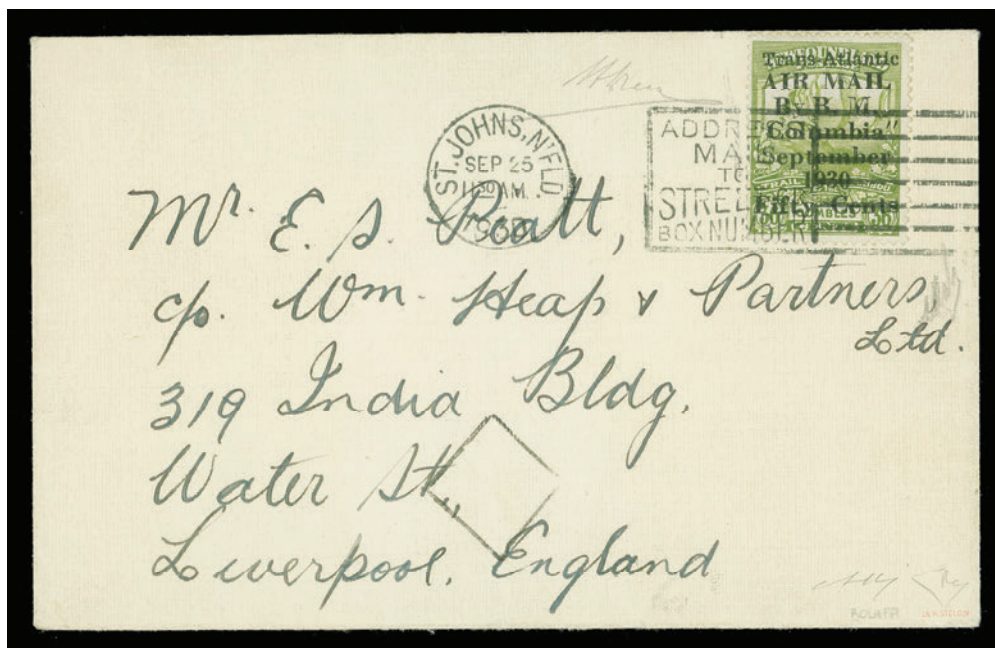 Trans-Atlantic
AIR MAIL
By B. M.
"Columbia"
September
1930
Fifty Cents
ST. JOHNS, N'FLD
SEP 25
11 30 AM
1930
ADDRESS
MAIL
TO
STREET
BOX NUMBER
Mr. E. S. Pratt,
c/o. Wm. Heap & Partners,
Ltd.
319 India Bldg.
Water St.,
Liverpool. England
BOLAFFI